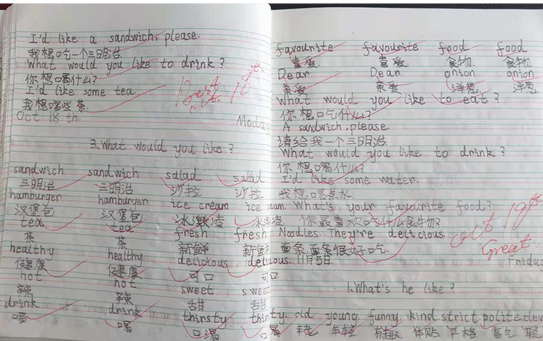 I'd like a sandwich, please.
我想吃一个三明治
What would you like to drink?
你想喝什么?
I'd like some tea
我想喝些茶
Oct 18th Moday
3.What would you like?
sandwich sandwich salad salad
三明治 三明治 沙拉 沙拉
hamburger hamburger ice cream ice cream
汉堡包 汉堡包 冰激凌 冰激凌
tea tea fresh fresh
茶 茶 新鲜 新鲜
healthy healthy delicious delicious
健康 健康 可口 可口
hot hot sweet sweet
辣 辣 甜 甜
drink drink thirsty thirsty
喝 喝 口渴 口渴
favourite favourite food food
喜爱 喜爱 食物 食物
Dear Dear onion onion
亲爱 亲爱 洋葱 洋葱
What would you like to eat?
你想吃什么?
A sandwich, please.
请给我一个三明治
What would you like to drink?
你想喝什么?
I'd like some water.
我想喝点水
What's your favourite food?
你最喜欢吃什么食物?
Noodles. They're delicious
面条 面条很好吃
Oct 19th
Great
11月5日 Friday
1.What's he like?
old young funny kind strict polite
年老 年轻 有趣 体贴 严格 客气